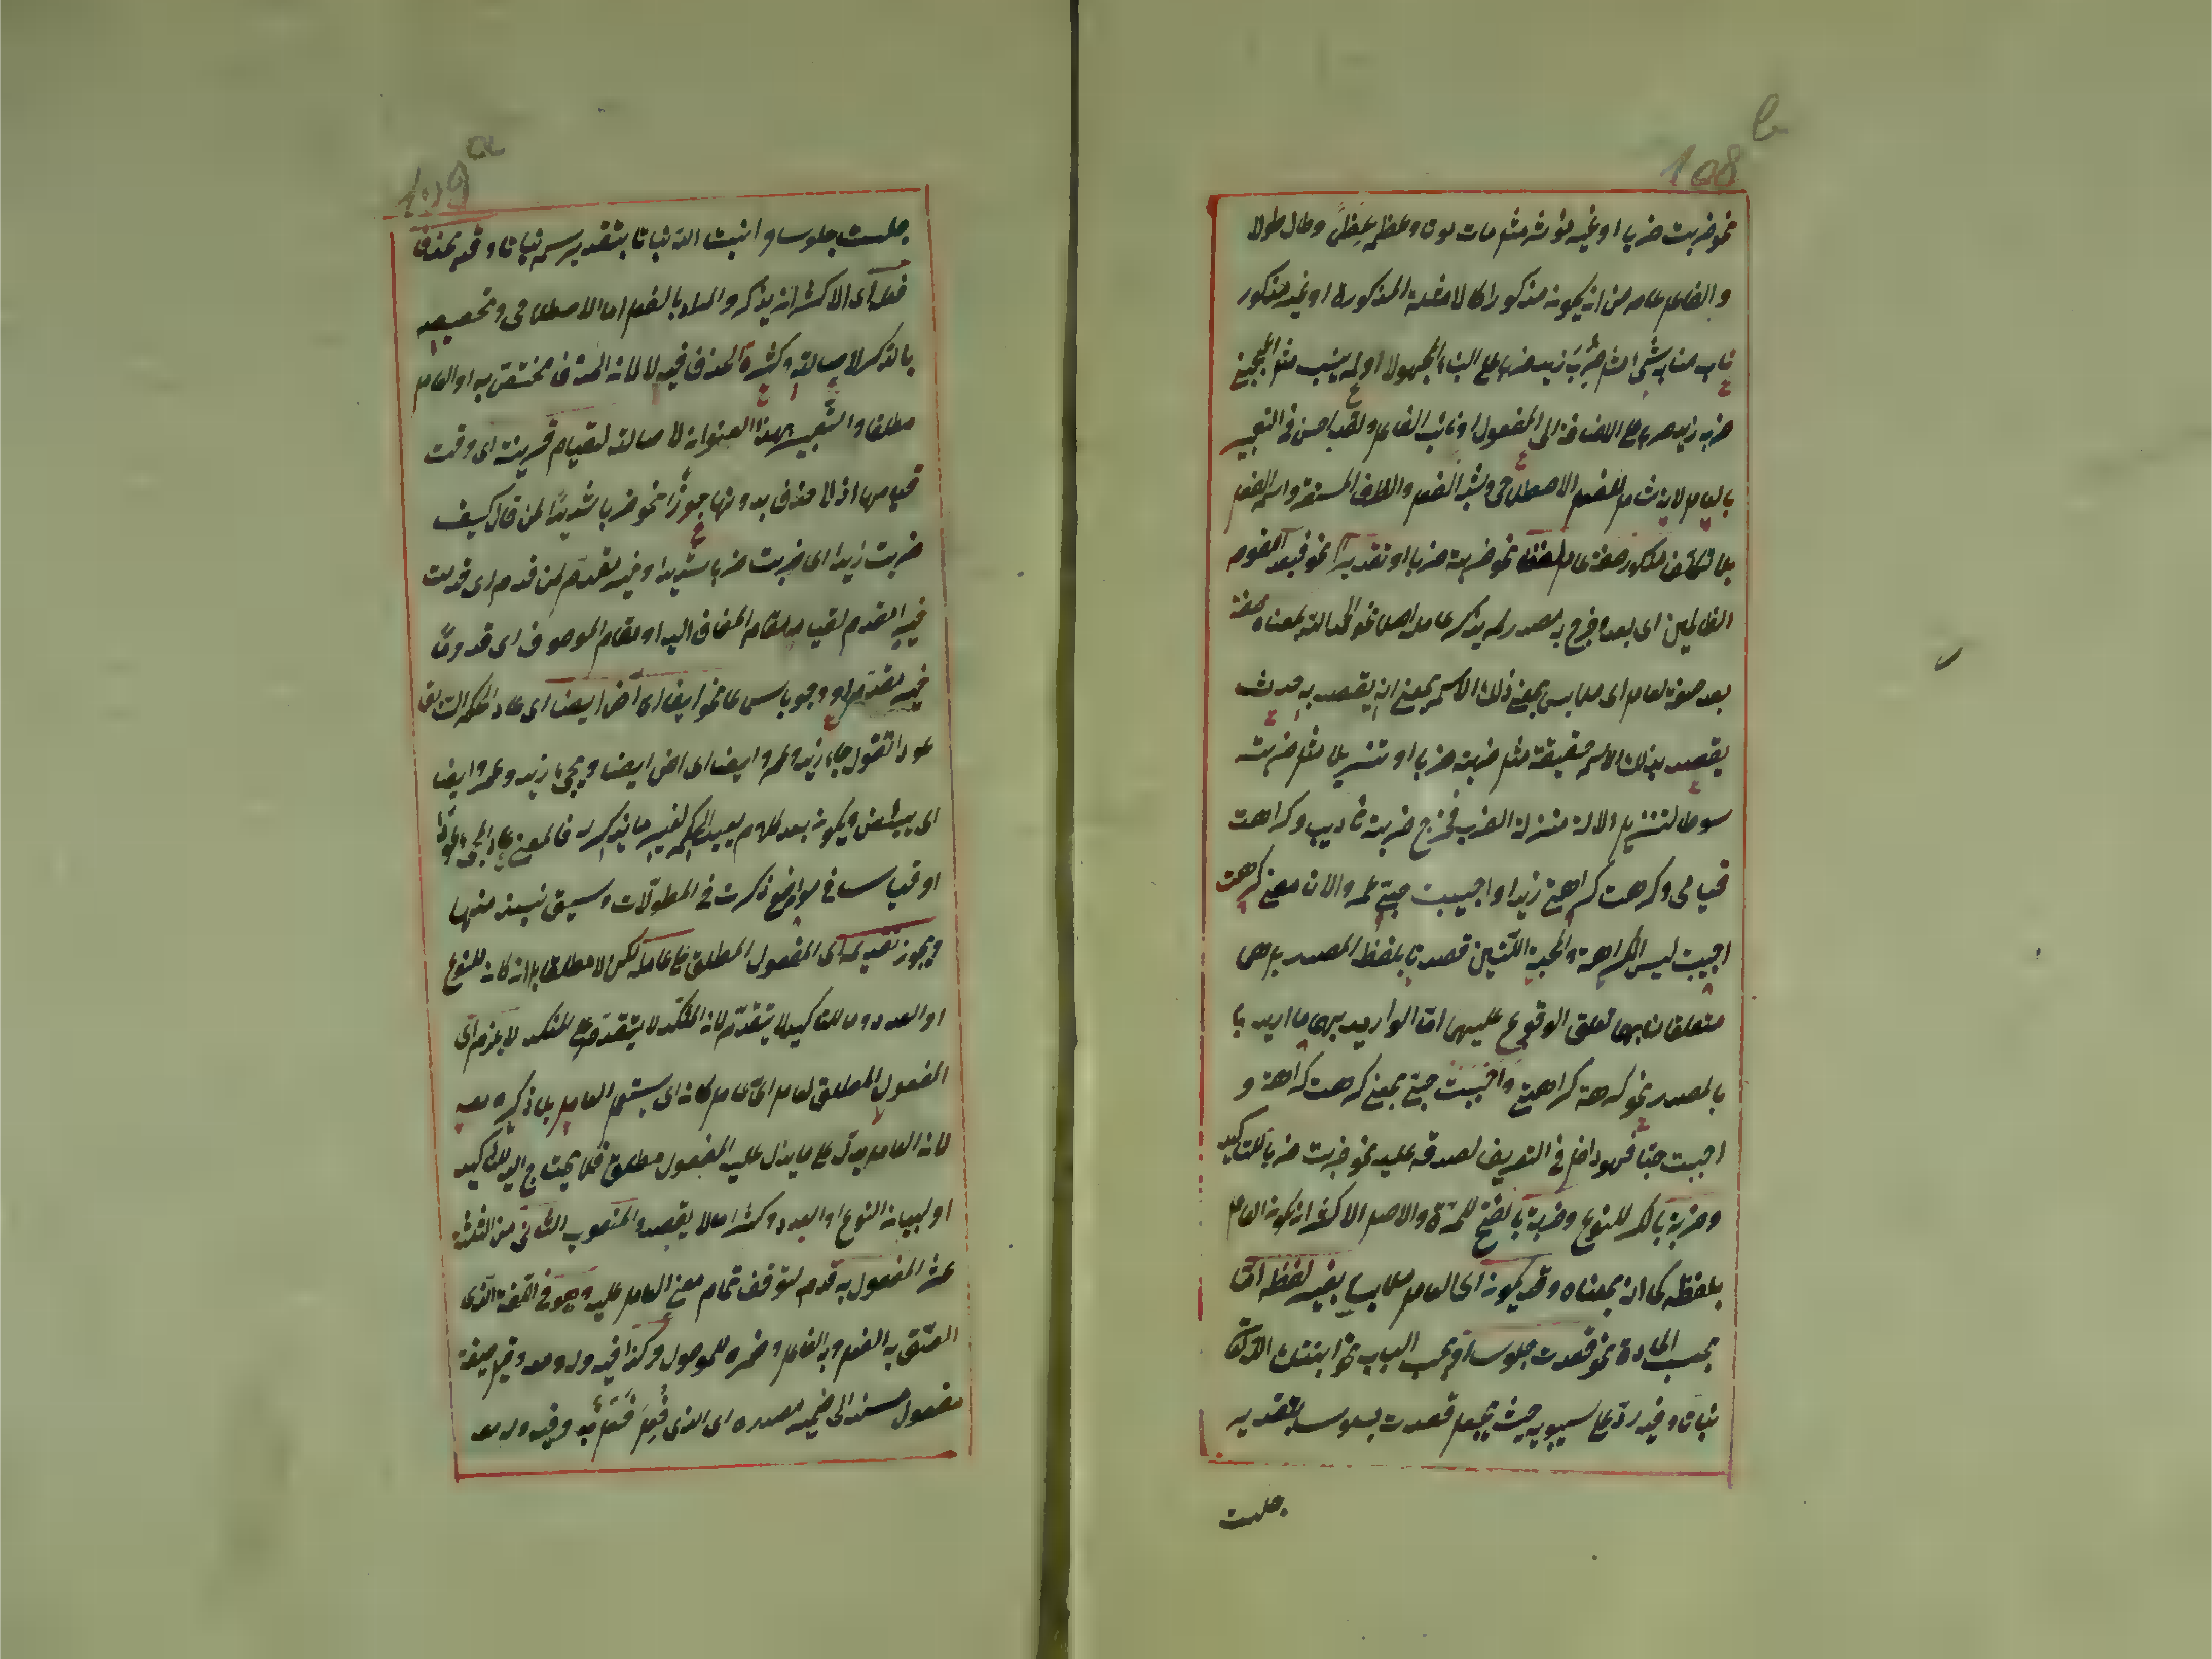 108 b
نحو ضربت ضربا او غير مؤثر مثل مات موتا وعظم عظما وطال طولا
والفاعل عام من ان يكون مذكورا كالامثلة المذكورة او غير مذكور
ناب منابه شئ مثل ضُرِبَ زيد ضربا على البناء المجهول او لم ينب مثل اعجبنى
ضرب زيد ضربا على الاضافة الى المفعول او نائب الفاعل احسن فى التعبير
بالعامل لانه شامل للفعل الاصطلاحى وشبه الفعل والظرف المستقر واسم الفعل
مذكور صفة عامل لفظا نحو ضربته ضربا او تقديرا نحو فبعدا للقوم
الظالمين اى بعد وخرج به مصدر لم يذكر عامله اصلا نحو الحمد لله بمعناه صفة
بعد صفة لعامل اى ملابس بمعنى ذلك الاسم بمعنى انه يقصد به حدث
يقصد بذلك الاسم حقيقة مثل ضربته ضربا او تنزيلا مثل ضربته
سوطا لتنزيل الالة منزلة الضرب فخرج ضربته تأديبا وكراهت
قيامى وكرهت كراهتى زيدا واحببت حبى عمرو الان معنى كرهت
احببت ليس الكراهة والمحبة اللتين قصدتا بلفظ المصدر بل هى
متعلقان بهما تعلق الوقوع عليهما اما لو اريد بهما ما اريد
بالمصدر نحو كرهت كراهتى واحببت حبى بمعنى كرهت كراهة و
احببت حبا فهو داخل فى التعريف لصدقه عليه نحو ضربت ضربا للتاكيد
وضربة بالكسر للنوع وضربة بالفتح للمرة والاصل الاكثر ان يكون العامل
بلفظه كما انه بمعناه وقد يكون اى العامل ملابسا بغير لفظه اما
بحسب المادة نحو قعدت جلوسا او بحسب الباب نحو انبتك الله
نباتا وفيه رد على سيبويه حيث يجعل قعدت جلوسا بتقدير
جلست
109 a
جلست جلوسا وانبت الله نباتا بتقدير نباتا وقد يحذف
فعله اى الاكثر ان يذكر والمراد بالفعل اما الاصطلاحى وتخصيصه
بالذكر لاصالته وكثرة الحذف فيه لا لان الحذف مختص به او العامل
مطلقا والتعبير بهذا العنوان لاصالته لقيام قرينة اى وقت
قيامها اذ لا حذف بدونها جوازا نحو ضربا شديدا لمن قال كيف
ضربت زيدا اى ضربت ضربا شديدا وخير مقدم لمن قدم اى قدمت
خير القدوم لقيامه مقام المضاف اليه او مقام الموصوف اى قدوما
خير مقدم او وجوبا سماعا نحو ايضا اى آض ايضا اى عاد الحكم السابق
عودا تقول جاء زيد وعمرو ايضا اى آض ايضا ويجئ زيد وعمرو ايضا
اى يئيض ويكون بعد كلام يعيد الحكم لغير ما ذكر فالمعنى
او قياسا فى مواضع ذكرت فى المطولات وسيق نبذ منها
ويجوز تقديمه اى المفعول المطلق على عامله لكن لا مطلقا بل ان كان للنوع
او العدد وما للتاكيد لا يتقدم لان المؤكد لا يتقدم على المؤكد لا يلزم اى
المفعول المطلق لعامل اى عامل كان اى يستعمل العامل بلا ذكره معه
لان العامل يدل على ما يدل عليه المفعول مطلق فلا يحتاج اليه للتاكيد
او لبيان النوع او العدد وكثيرا ما لا يقصد والمنصوب الثانى من الثلثة
عشر المفعول به قدم لتوقف تمام معنى العامل عليه وهو فى اللغة الذى
التصق به الفعل وبه الفاعل وضميره للموصول وكذا فيه وله ومعه وقيل صيغة
مفعول مسند الى ضمير مصدره اى الذى فُعِلَ فعل به وفيه وله معه